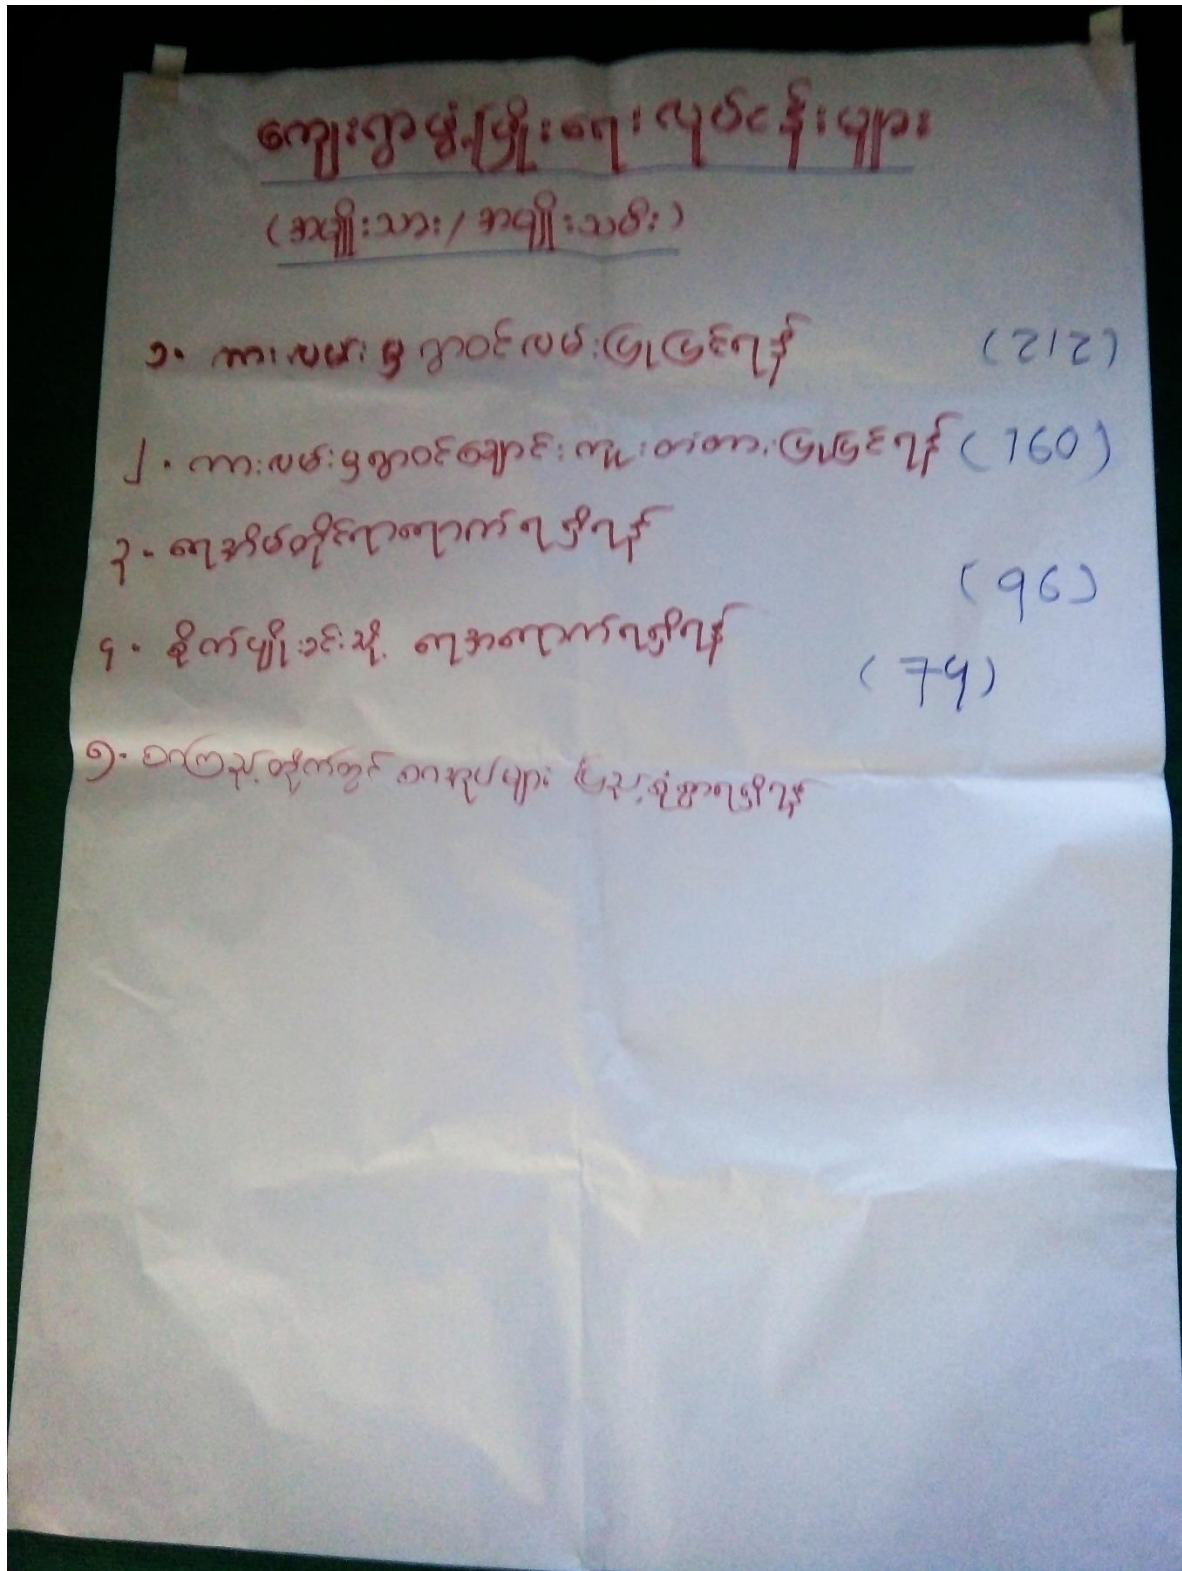 ကျေးရွာဖွံ့ဖြိုးရေးလုပ်ငန်းများ
(အမျိုးသား/အမျိုးသမီး)
၁. ကားလမ်းမှရွာဝင်လမ်းပြုပြင်ရန် (212)
၂. ကားလမ်းမှရွာဝင်ချောင်းကူးတံတားပြုပြင်ရန် (160)
၃. ရေအိမ်တိုင်ရာရောက်ရရှိရန် (96)
၄. စိုက်ပျိုးခင်းသို့ ရေအရောက်ရရှိရန် (74)
၅. စာကြည့်တိုက်တွင် စာအုပ်များ ပြည့်စုံစွာရရှိရန်